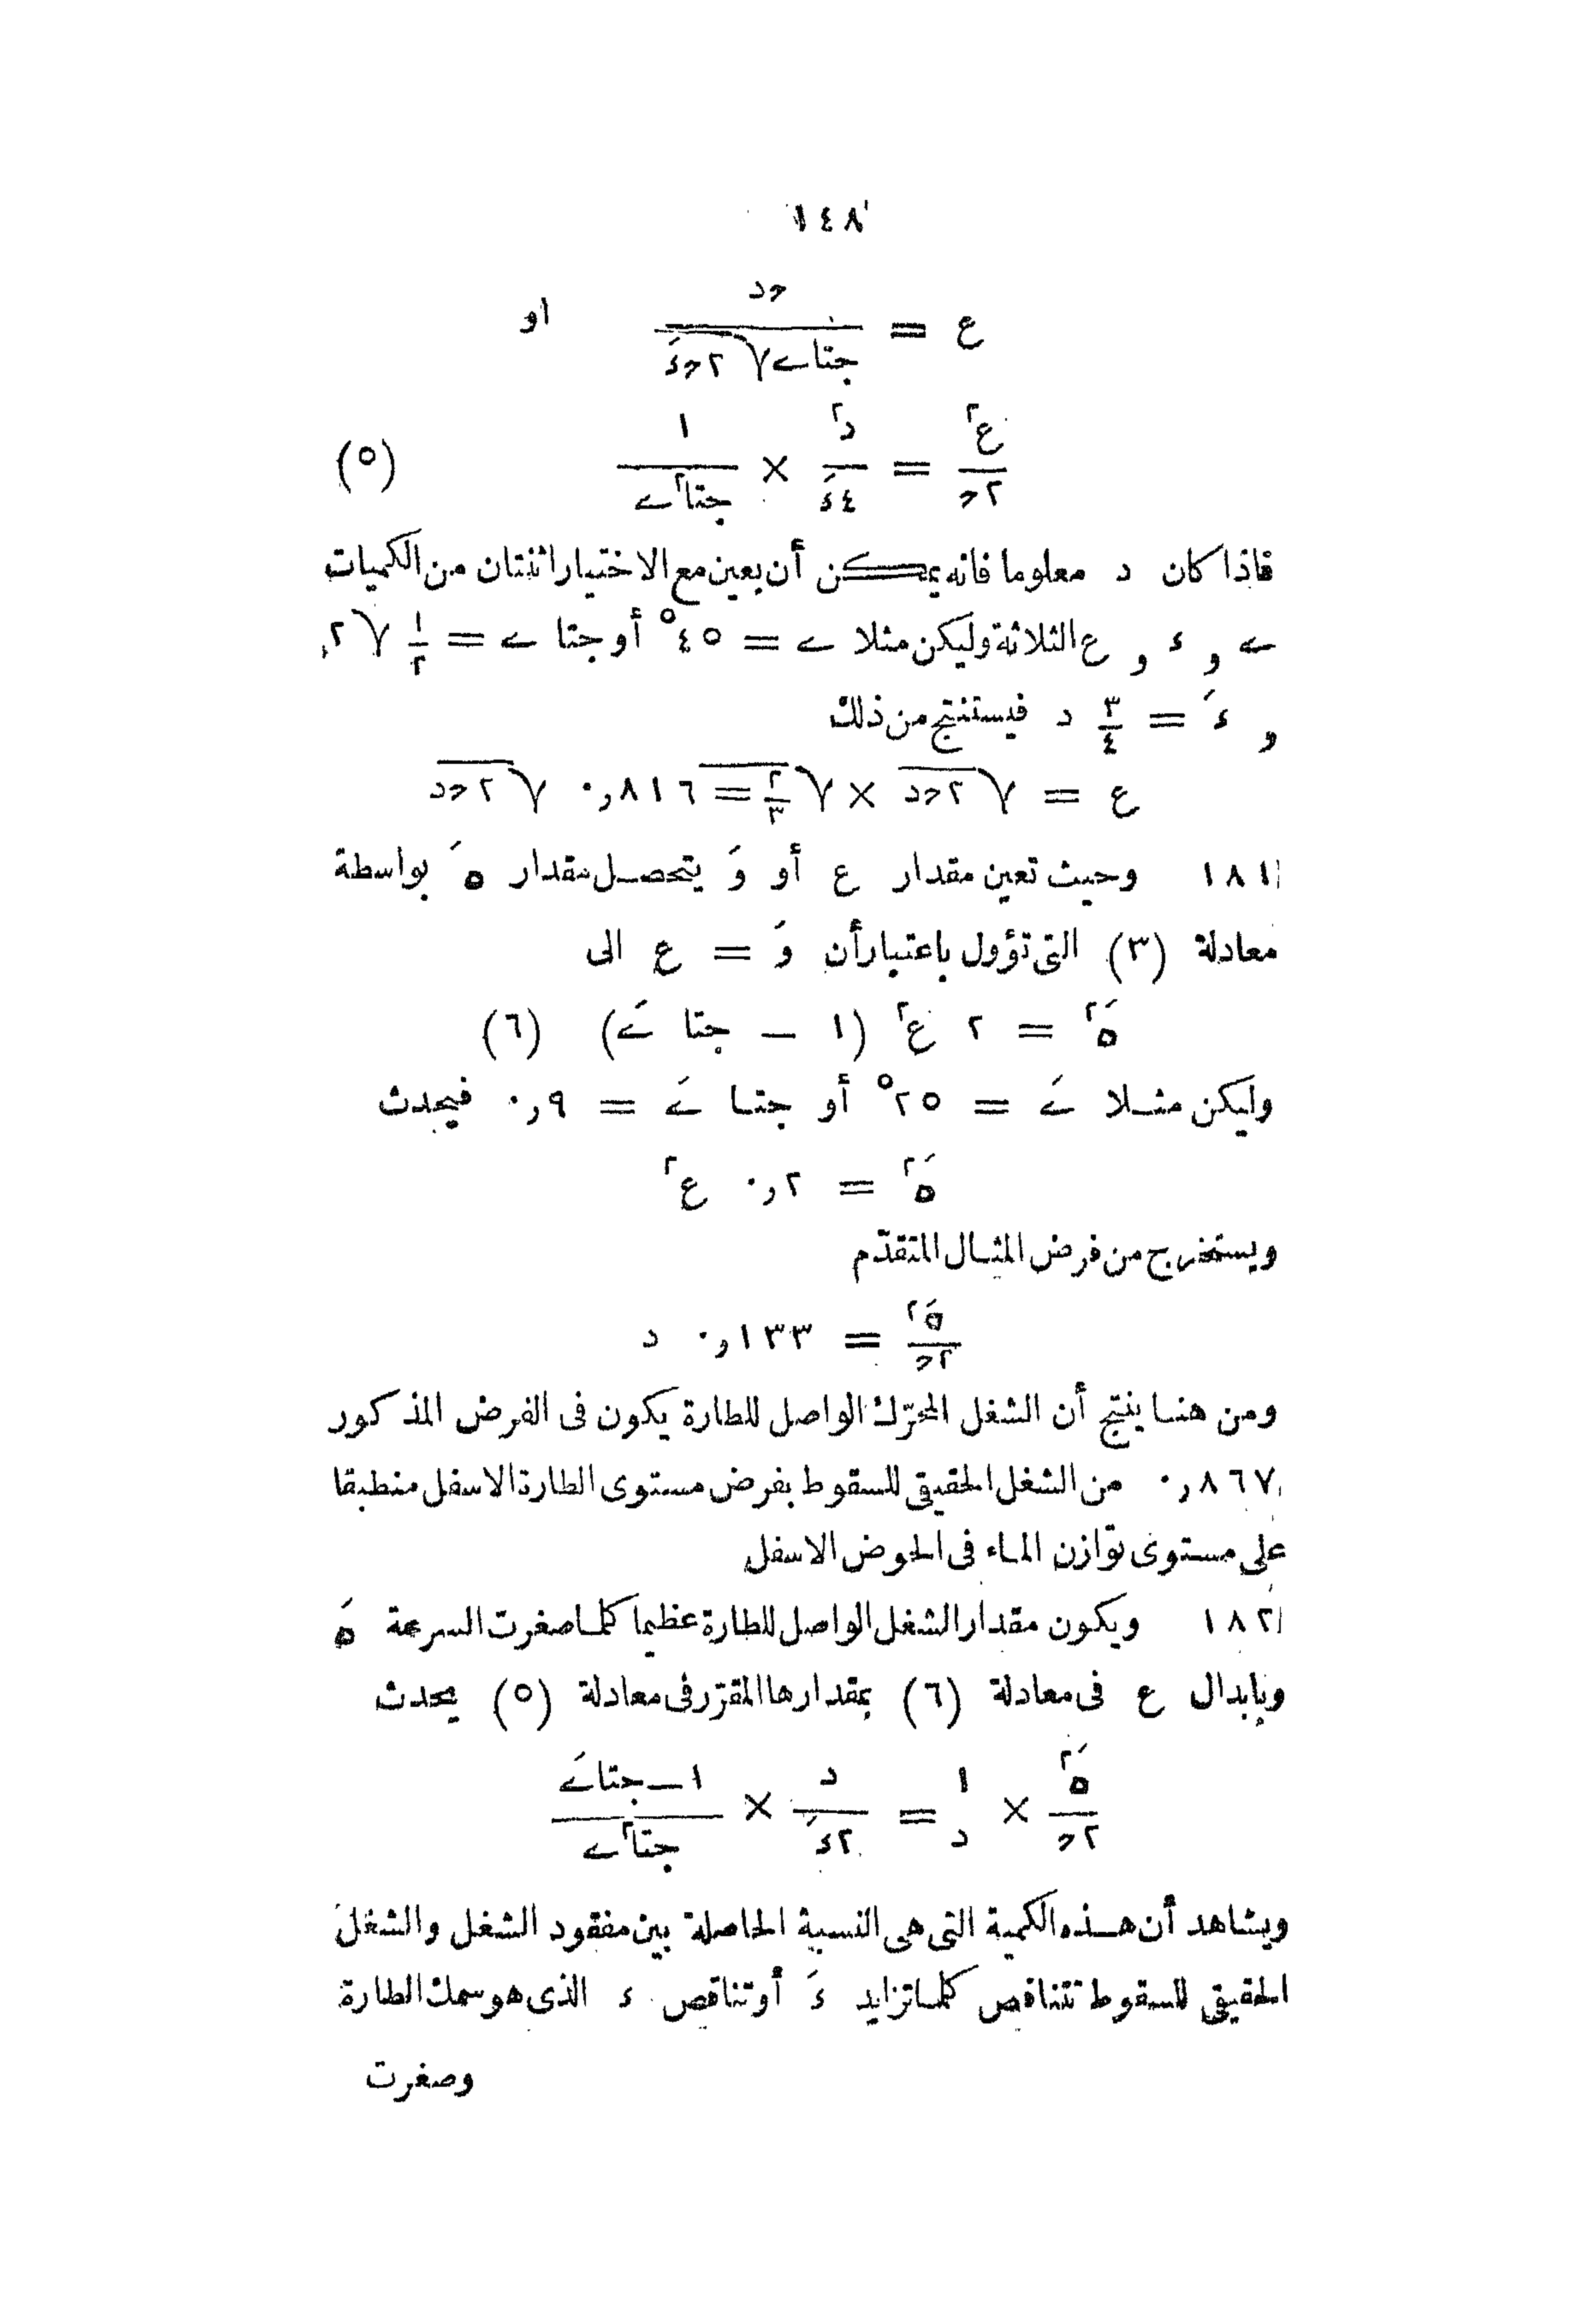 ١٤٨
ع = حد / جتاے √٢حءَ او
ع٢ / ٢ح = د٢ / ٤ءَ × ١ / جتا٢ے (٥)
فاذا كان د معلوما فانه يمكن أن يعين مع الاختيار اثنتان من الكميات
ے و ء و ع الثلاثة وليكن مثلا ے = ٤٥° أو جتا ے = ١/٢ √٢
و ءَ = ٣/٤ د فيستنتج من ذلك
ع = √٢حد × √٢/٣ = ٠٫٨١٦ √٢حد
١٨١ وحيث تعين مقدار ع أو وَ يتحصل مقدار هَ بواسطة
معادلة (٣) التى تؤول باعتبار أن وَ = ع الى
هَ٢ = ٢ ع٢ (١ — جتا ےَ) (٦)
وليكن مثلا ےَ = ٢٥° أو جتا ےَ = ٠٫٩ فيحدث
هَ٢ = ٠٫٢ ع٢
ويستخرج من فرض المثال المتقدّم
هَ٢ / ٢ح = ٠٫١٣٣ د
ومن هنا ينتج أن الشغل المحرّك الواصل للطارة يكون فى الفرض المذكور
٠٫٨٦٧ من الشغل الحقيقى للسقوط بفرض مستوى الطارة الاسفل منطبقا
على مستوى توازن الماء فى الحوض الاسفل
١٨٢ ويكون مقدار الشغل الواصل للطارة عظيما كلما صغرت السرعة هَ
وبإبدال ع فى معادلة (٦) بمقدارها المقرّر فى معادلة (٥) يحدث
هَ٢ / ٢ح × ١ / د = د / ٢ءَ × ١—جتاےَ / جتا٢ے
ويشاهد أن هذه الكمية التى هى النسبة الحاصلة بين مفقود الشغل والشغل
الحقيقى للسقوط تتناقص كلما تزايد ءَ أو تناقص ء الذى هو سمك الطارة
وصغرت